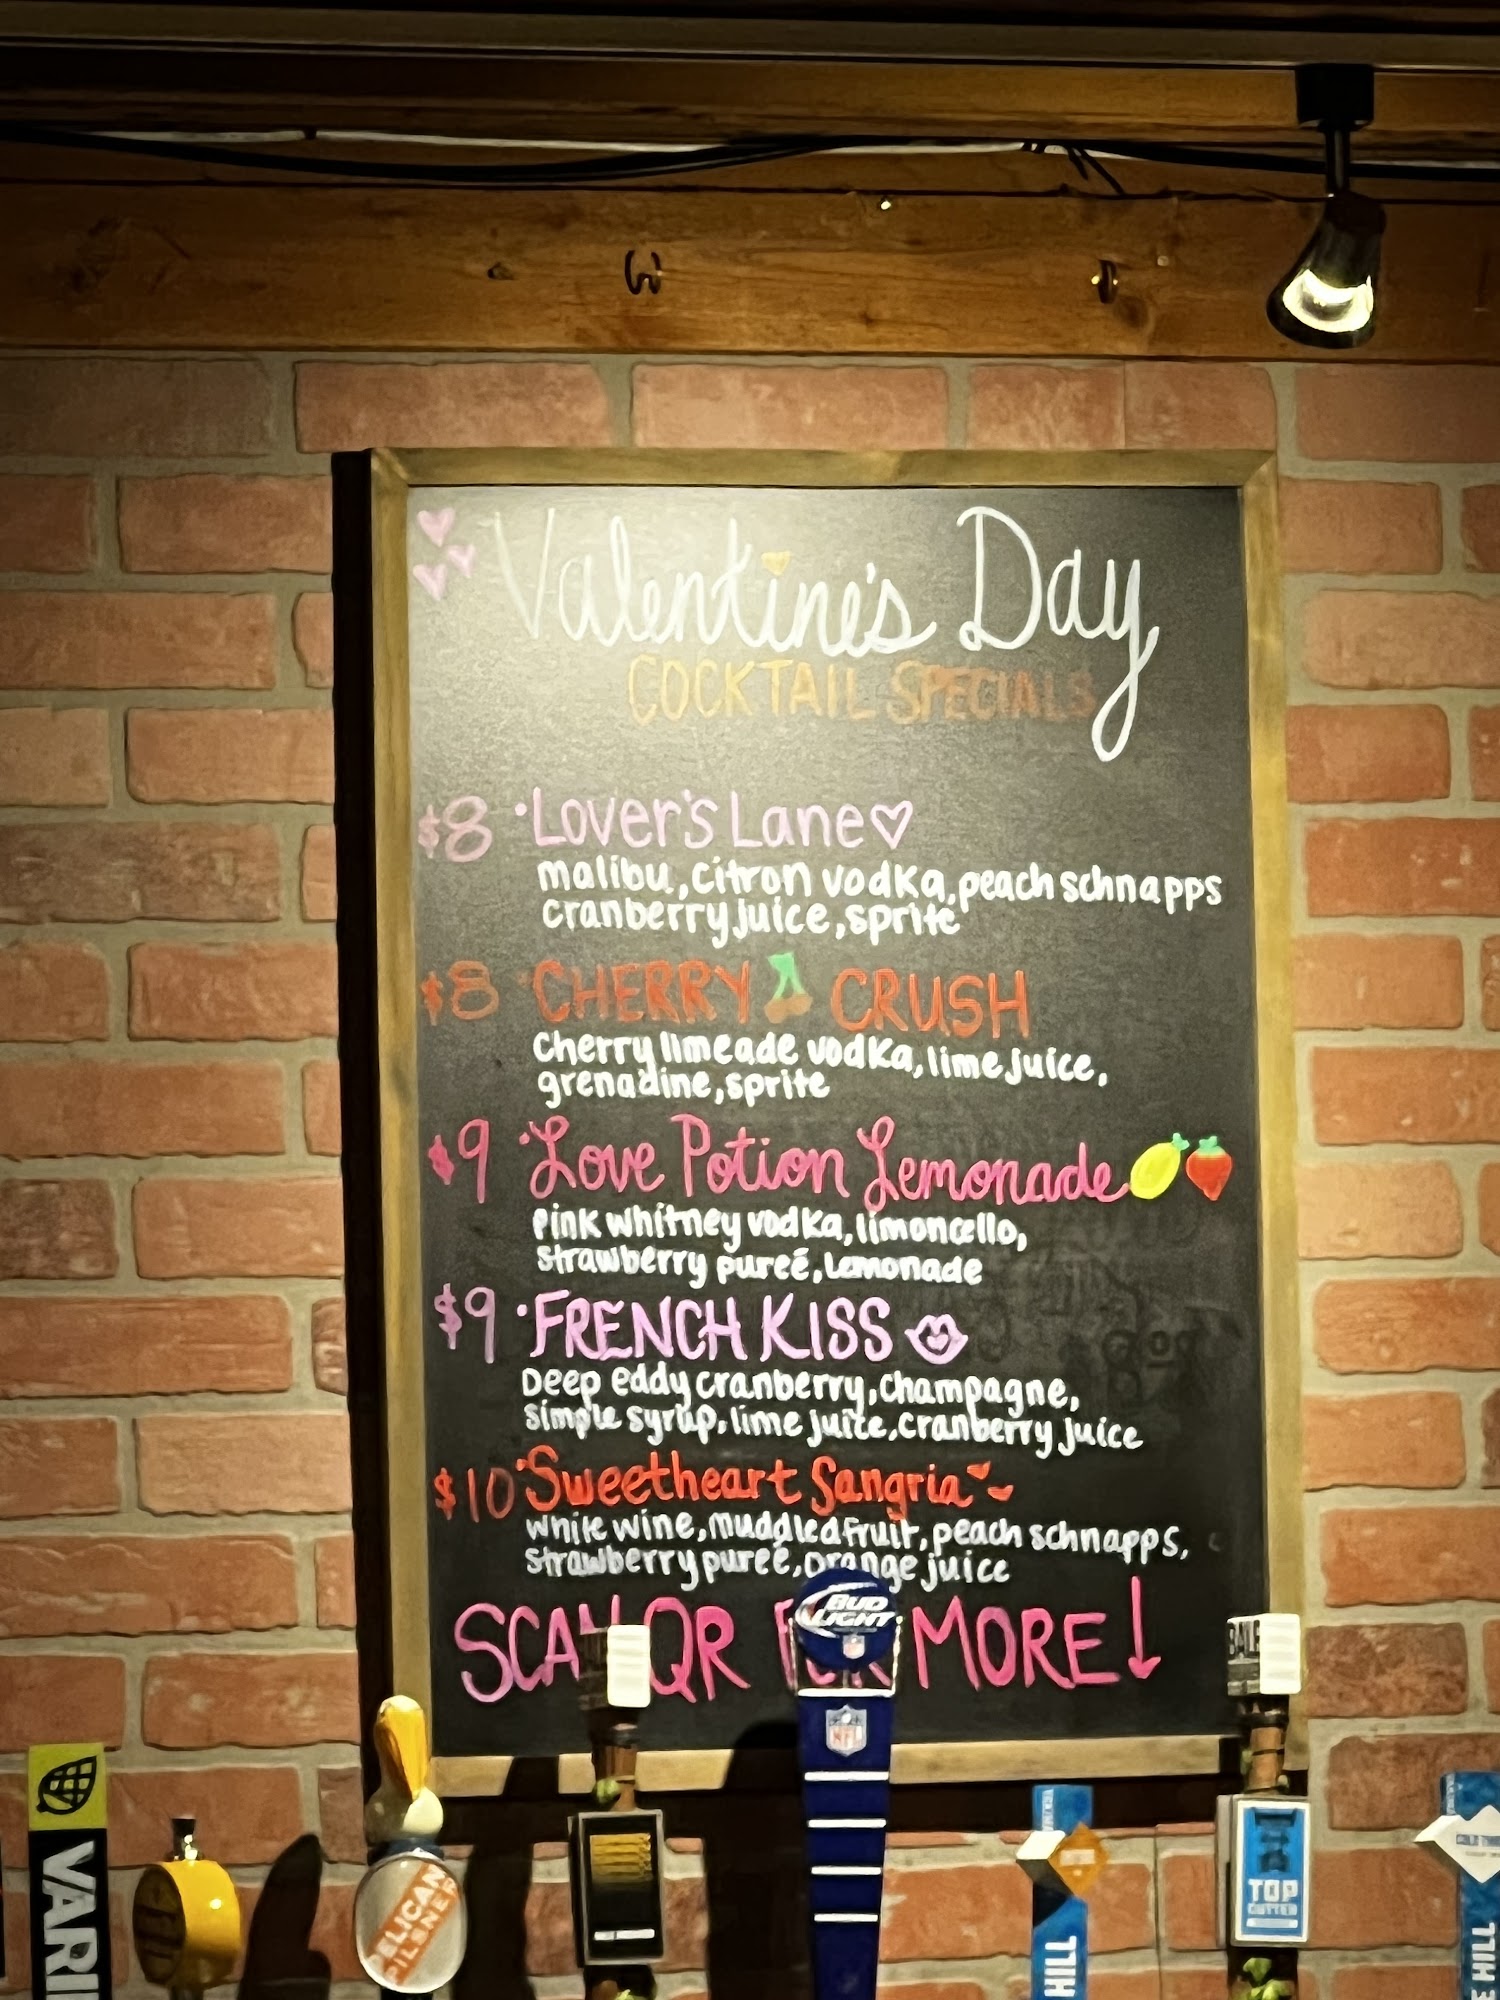 Valentine's Day
COCKTAIL SPECIALS
$8 • Lover's Lane
malibu, citron vodka, peach schnapps
cranberry juice, sprite
$8 • CHERRY CRUSH
Cherry limeade vodka, lime juice,
grenadine, sprite
$9 • Love Potion Lemonade
pink whitney vodka, limoncello,
strawberry pureé, Lemonade
$9 • FRENCH KISS
Deep eddy cranberry, champagne,
simple syrup, lime juice, cranberry juice
$10 • Sweetheart Sangria
white wine, muddled fruit, peach schnapps,
strawberry pureé, orange juice
SCAN QR FOR MORE!
BUD
LIGHT
NFL
VARI
PELICAN
PILSNER
HILL
TOP
CUTTER
HILL